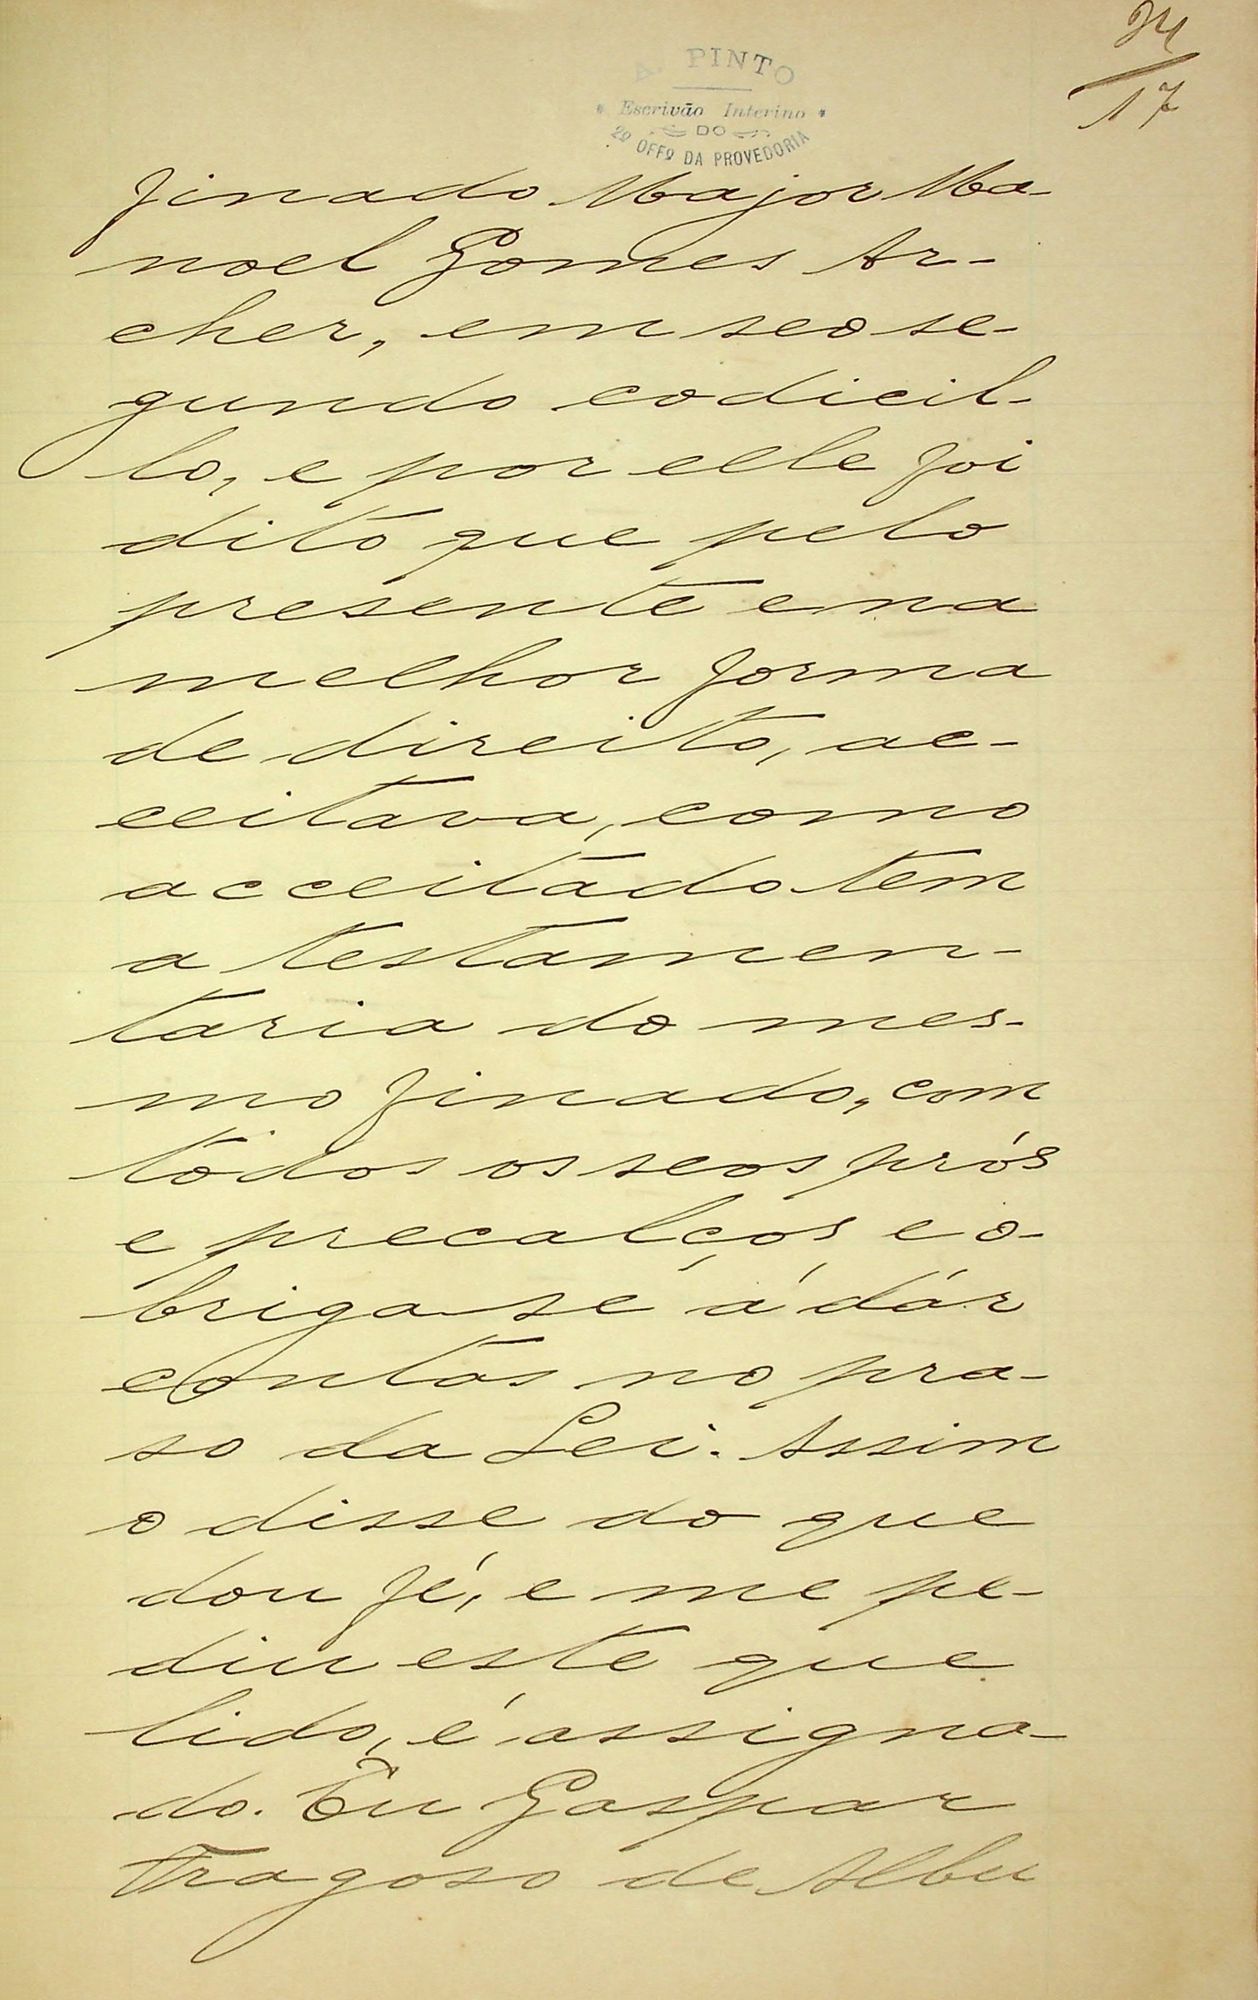 24
17
A. PINTO
Escrivão Interino
DO
2º OFFº DA PROVEDORIA
finado Major Ma-
noel Gomes Ar-
cher, em seo se-
gundo codicil-
lo, e por elle foi
dito que pelo
presente e na
melhor forma
de direito, ac-
ceitava, como
acceitado tem
a testamen-
taria do mes-
mo finado, com
todos os seos prós
e precalços e o-
briga se á dár
contas no pra-
so da Lei. Assim
o disse do que
dou fé, e me pe-
diu este que
lido, é assigna-
do. Eu Gaspar
Fragoso de Albu